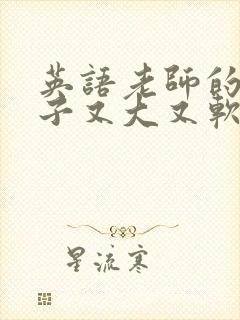 英語老師的
子又大又軟
星流寒